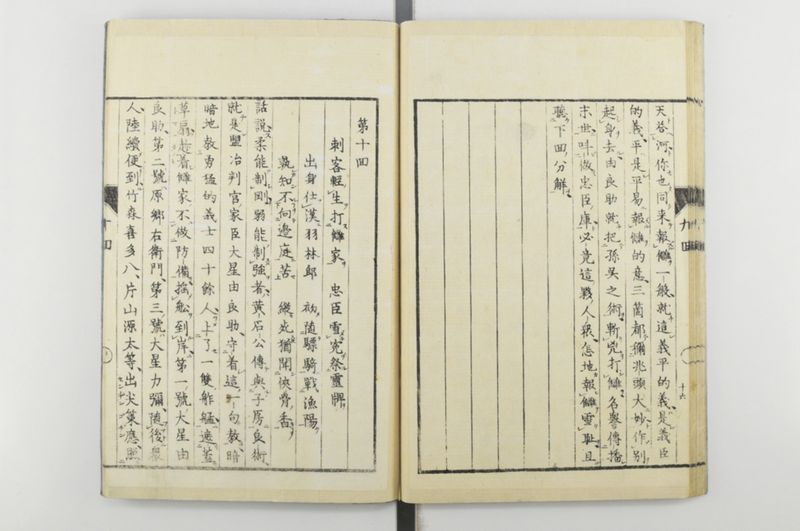 天答河你也同來報讎一般就這義平的義是義臣
的義平是平易報讎的意三箇都彌兆頭大妙作別
起身去由良助就把孫吳之術斬兇打讎名譽傳播
末世叫做忠臣庫必竟這戮人衆怎地報讎雪恥且
聽下回分解
九回
十六
第十回
刺客輕生打讎家 忠臣雪冤祭靈牌
出身仕漢羽林郎 初隨驃騎戰漁陽
孰知不向邊庭苦 縱死猶聞俠骨香
話説柔能制剛弱能制強者黃石公傳與子房良術
就是盟冶判官家臣大星由良助守着這一句教暗
暗地教勇猛的義士四十餘人上了一雙舴艋遮蓋
草扇趁着讎家不做防備搖舩到岸第一號大星由
良助第二號原鄉右衛門第三號大星力彌隨後衆
人陸續便到竹森喜多八片山源太等出尖策應照